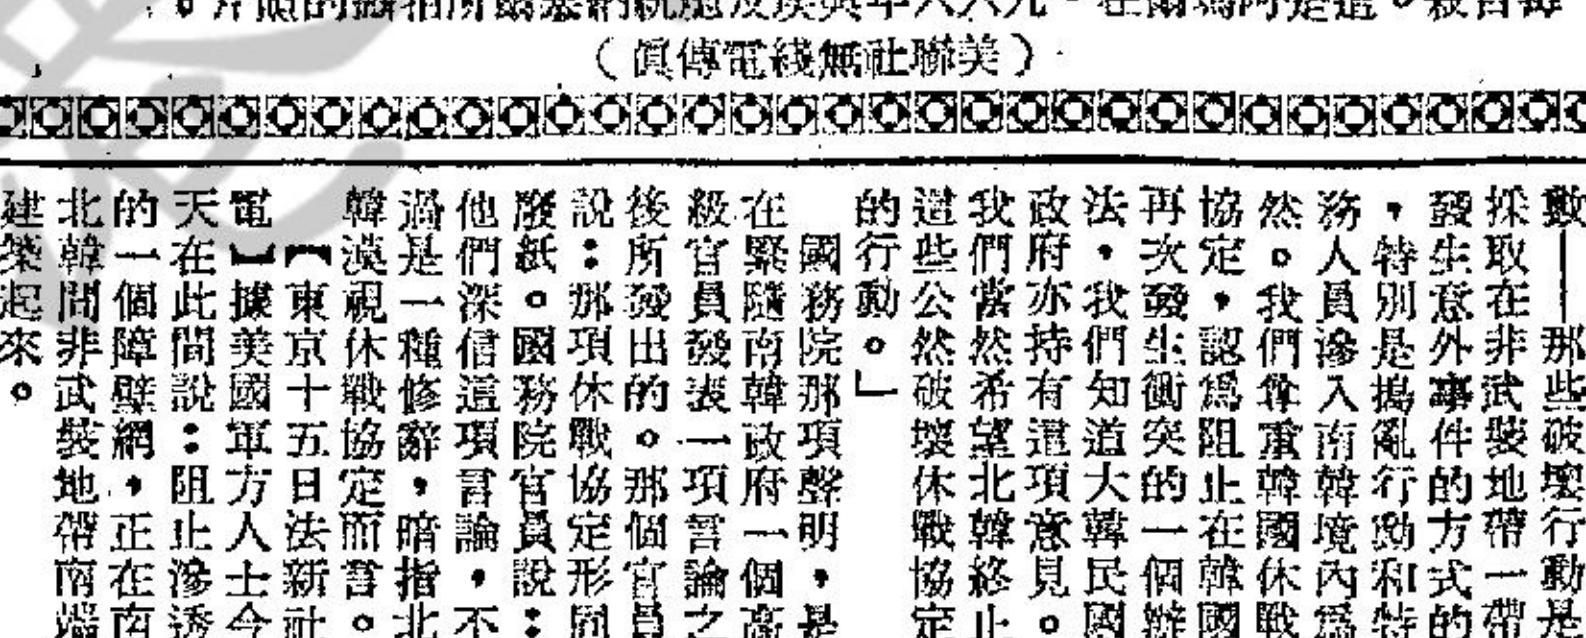 這是阿瑪爾在 九六六年與 所拍攝的照片。
（美聯社無綫電傳眞）
數——那些破壞行動是
採取在非武裝地帶一帶
發生意外事件的方式的
，特別是搗亂行動和特
務人員滲入南韓境內爲
然。我們尊重韓國休戰
協定，認爲阻止在韓國
再次發生衝突的一個辦
法，我們知道大韓民國
政府亦持有這項意見。
我們當然希望北韓終止
這些公然破壞休戰協定
的行動。」
國務院那項聲明，是
在緊隨南韓政府一個高
級官員發表一項言論之
後所發出的。那個官員
說：那項休戰協定形同
廢紙。國務院官員說：
他們深信這項言論，不
過是一種修辭，暗指北
韓漠視休戰協定而言。
【東京十五日法新社
電】據美國軍方人士今
天在此間說：阻止滲透
的一個障壁網，正在南
北韓間非武裝地帶南端
建築起來。